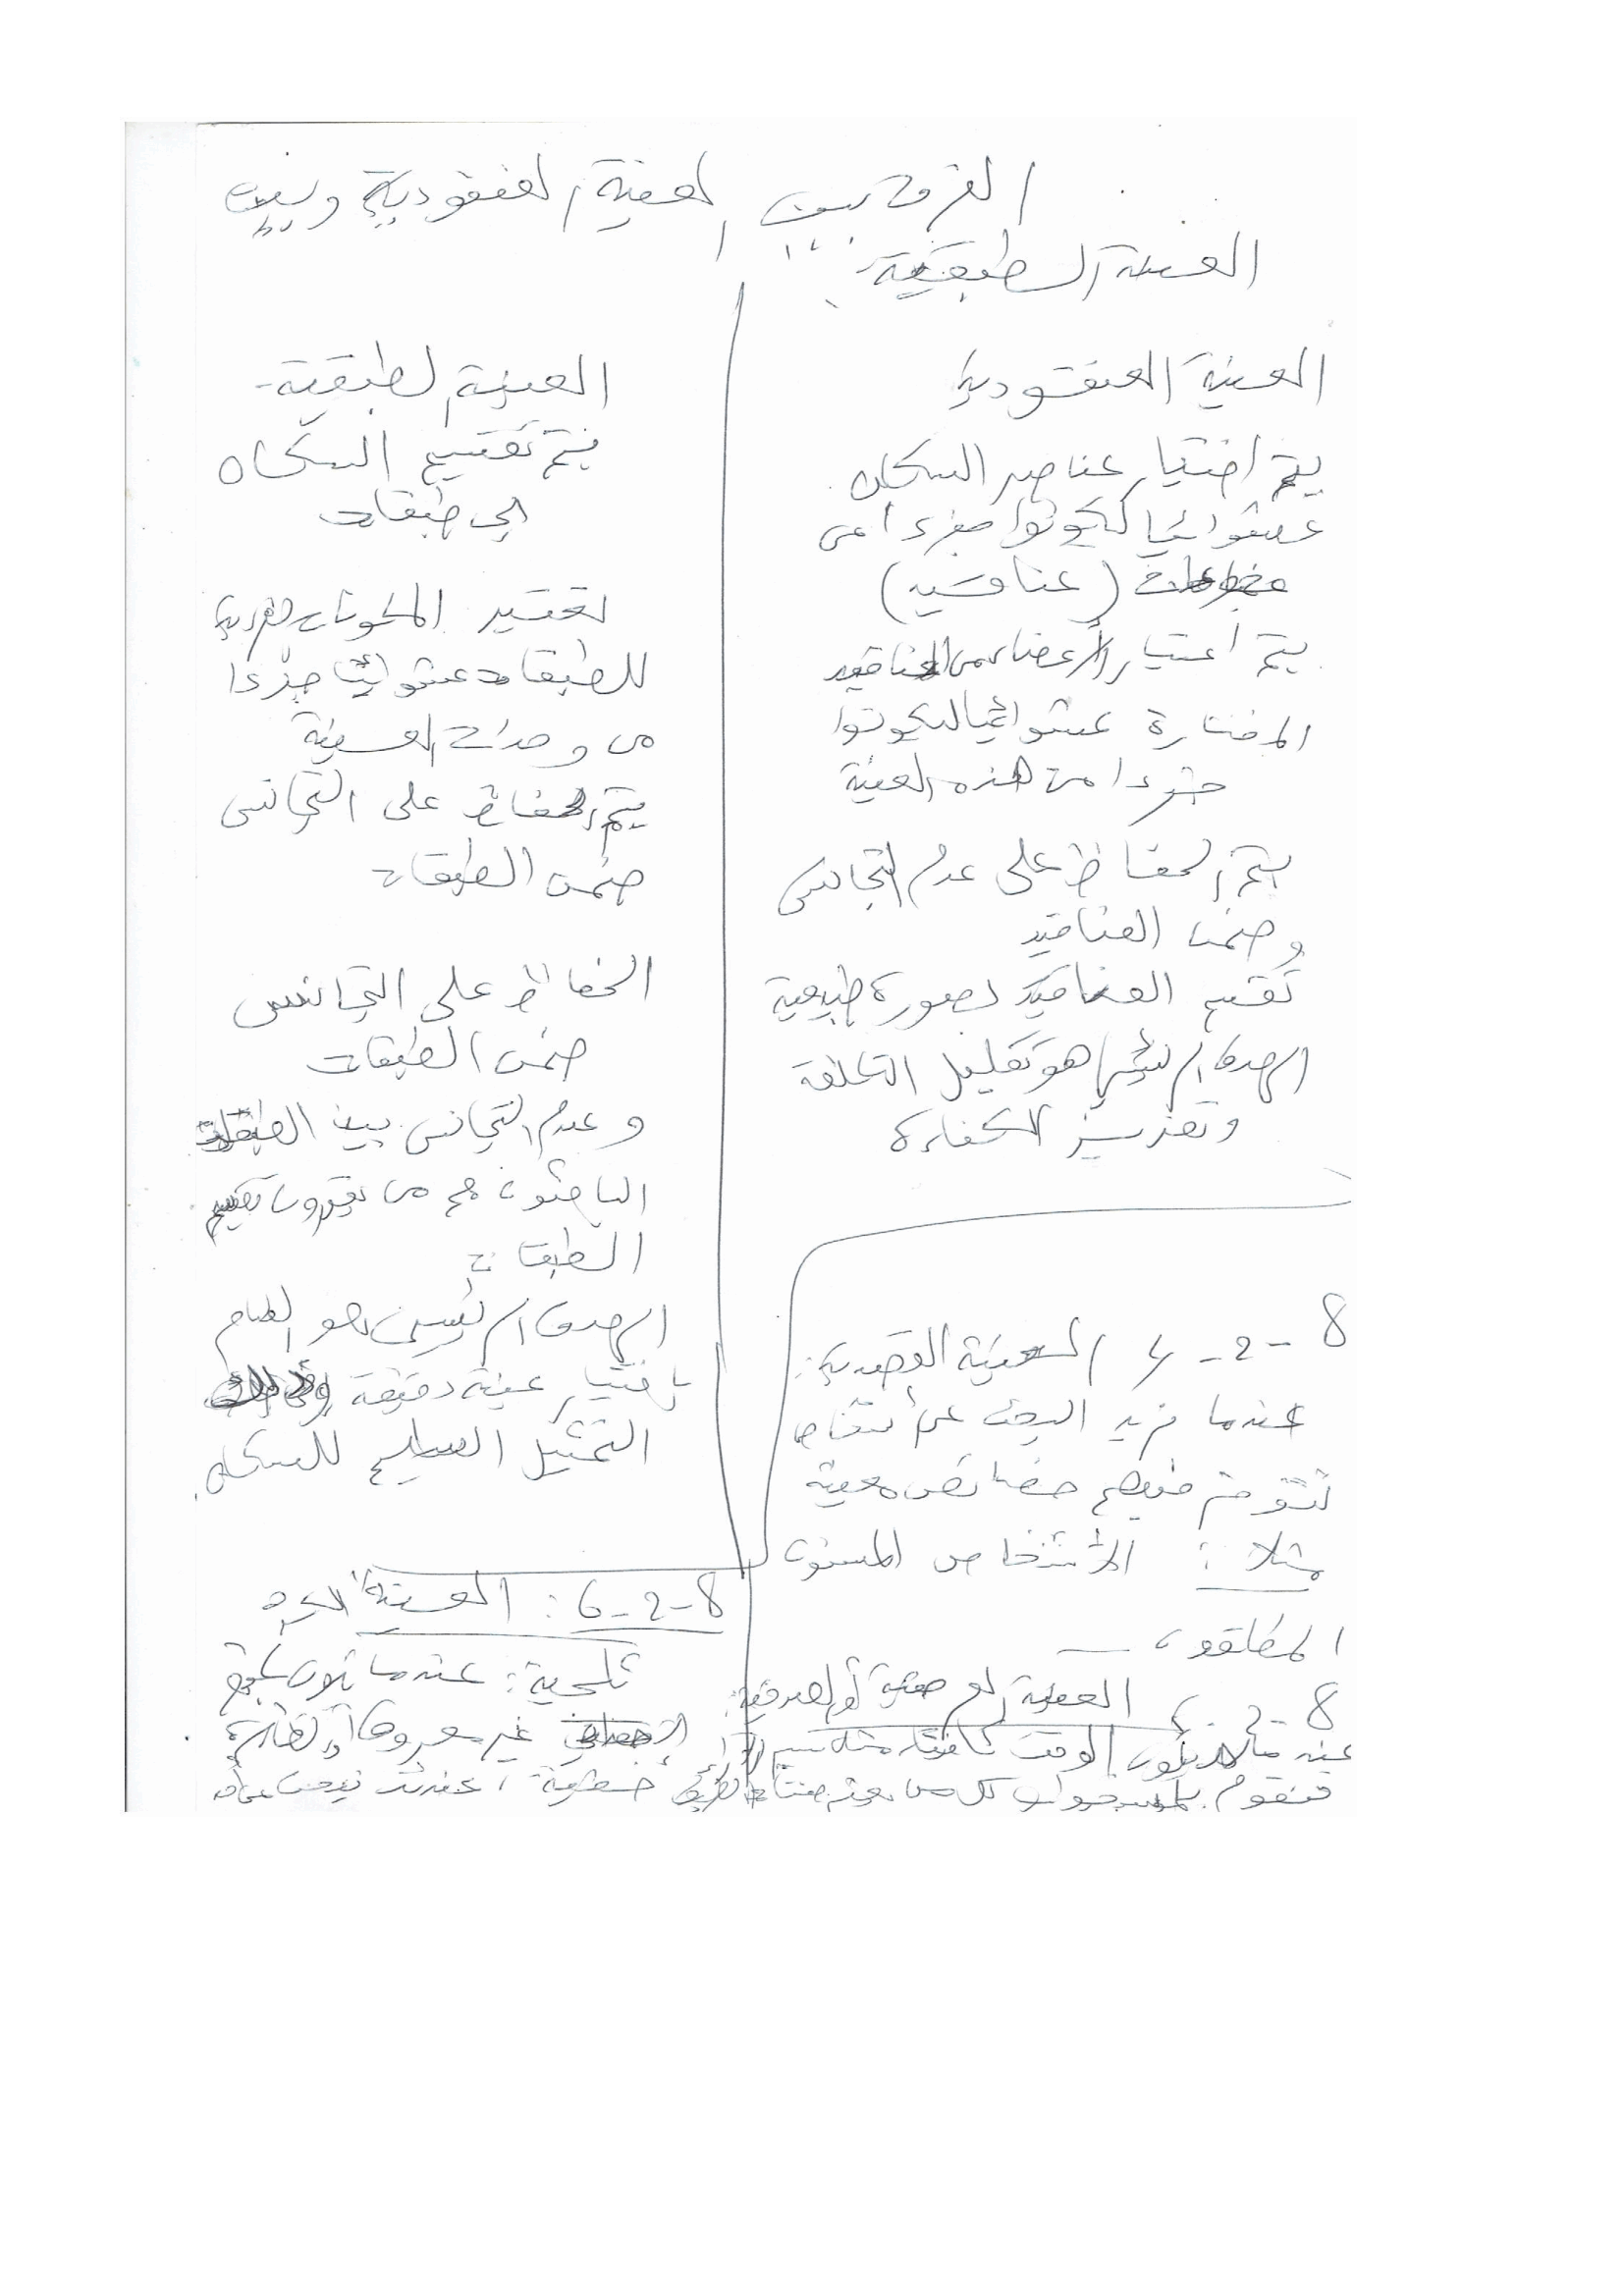 الفرق بين العينة العنقودية وبين
العينة الطبقية
العينة العنقودية
يتم اختيار عناصر السكان
عشوائيا ليكونوا جزءا من
مجموعات (عناقيد)
يتم اختيار الأعضاء من العناقيد
المختارة عشوائيا ليكونوا
جزءا من هذه العينة
يتم الحفاظ على عدم التجانس
وضمن العناقيد
تقسم العناقيد بصورة طبيعية
الهدف الرئيسي هو تقليل التكلفة
وتعزيز الكفاءة
العينة الطبقية -
يتم تقسيم السكان
إلى طبقات
تعتبر المكونات الفردية
للطبقات عشوائيا جزءا
من وحدات العينة
يتم الحفاظ على التجانس
ضمن الطبقات
الحفاظ على التجانس
ضمن الطبقات
وعدم التجانس بين الطبقات
الباحثون هم من يقررون تقسيم
الطبقات
الهدف الرئيسي هو القيام
باختيار عينة دقيقة
التمثيل السليم للسكان
8-2-4 العينة القصدية:
عندما نريد البحث عن أشخاص
تتوفر فيهم خصائص معينة
مثلا: الأشخاص المسنون
المطلقون
8-2- العينة العرضية أو الصدفية:
عندما لا يكون الوقت كافيا مثلا
فنقوم باستجواب كل من
8-2-6: العينة الكرة
ثلجية: عندما يكون مجتمع
غير معروف أو الظاهرة
خطيرة، عندئذ نبحث عن